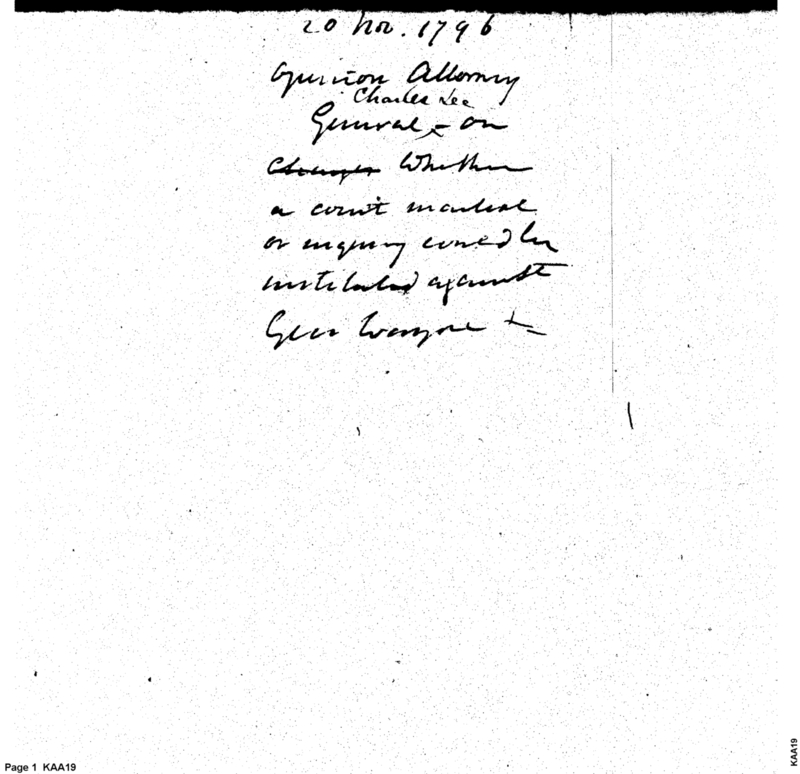 20 Nov. 1796
Opinion Attorney
Charles Lee
General, - on
Charges Whether
a court martial
or inquiry could be
instituted against
Genr Wayne
Page 1 KAA19
KAA19